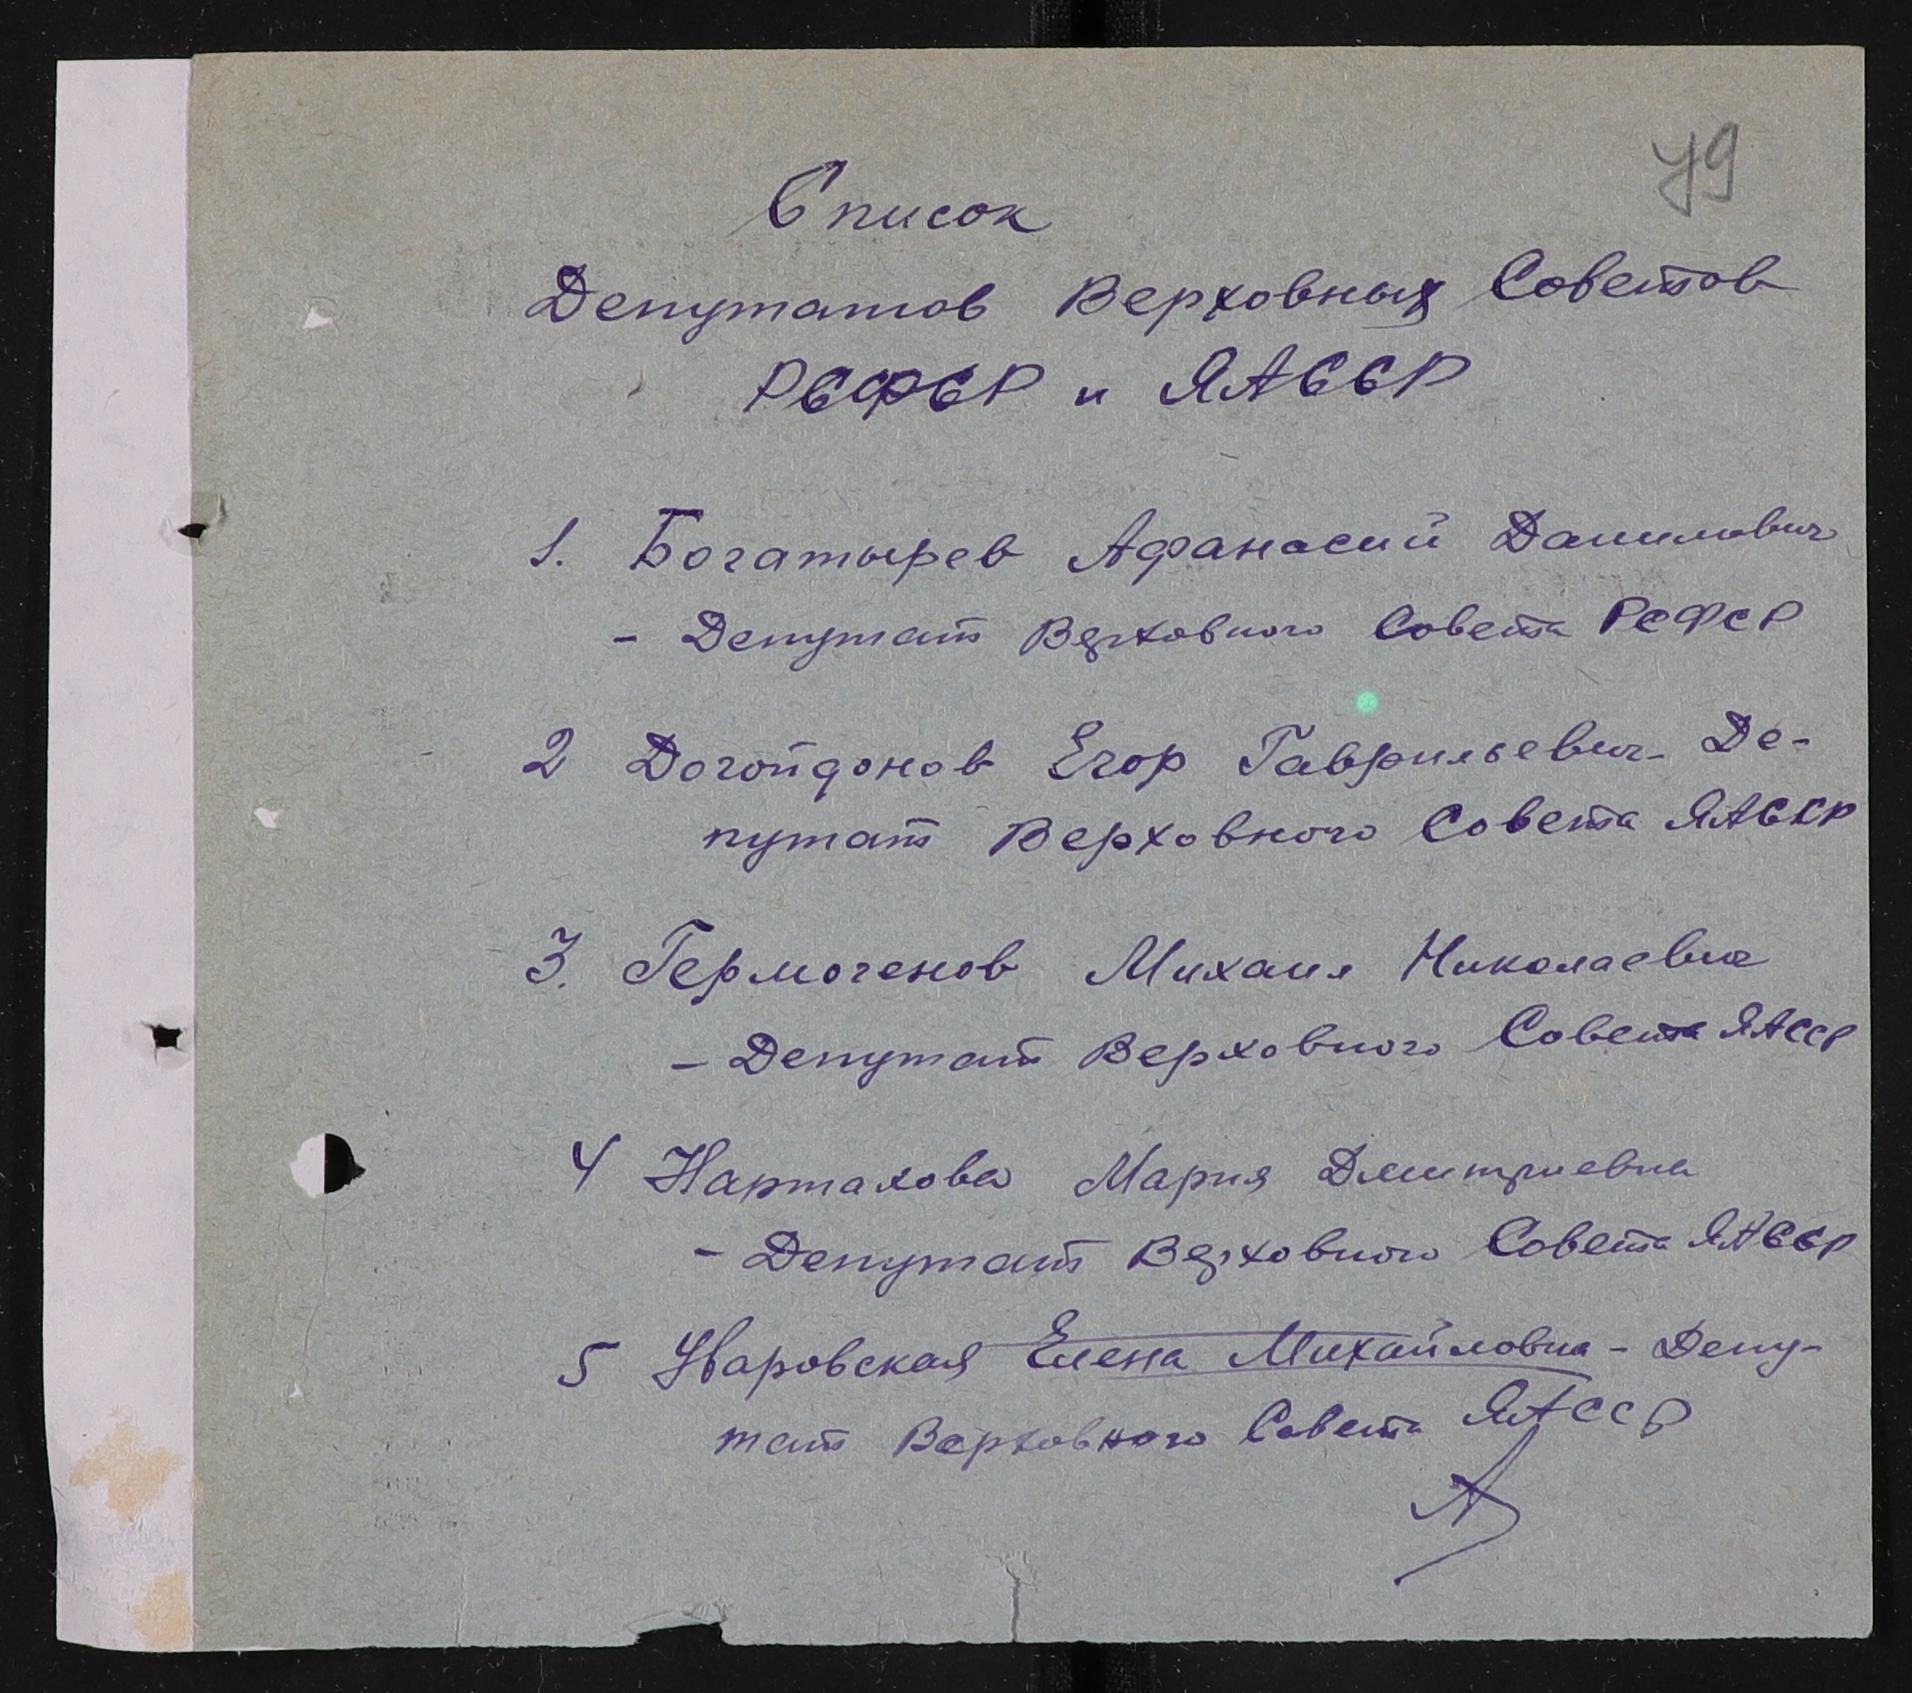 49
Список
Депутатов Верховных Советов
РСФСР и ЯАССР
1. Богатырев Афанасий Данилович
- Депутат Верховного Совета РСФСР
2 Догойдонов Егор Гаврильевич- Де-
путат Верховного Совета ЯАССР
3. Гермогенов Михаил Николаевич
- Депутат Верховного Совета ЯАССР
4 Нартахова Мария Дмитриевна
- Депутат Верховного Совета ЯАССР
5 Уваровская Елена Михайловна - Депу-
тат Верховного Совета ЯАССР